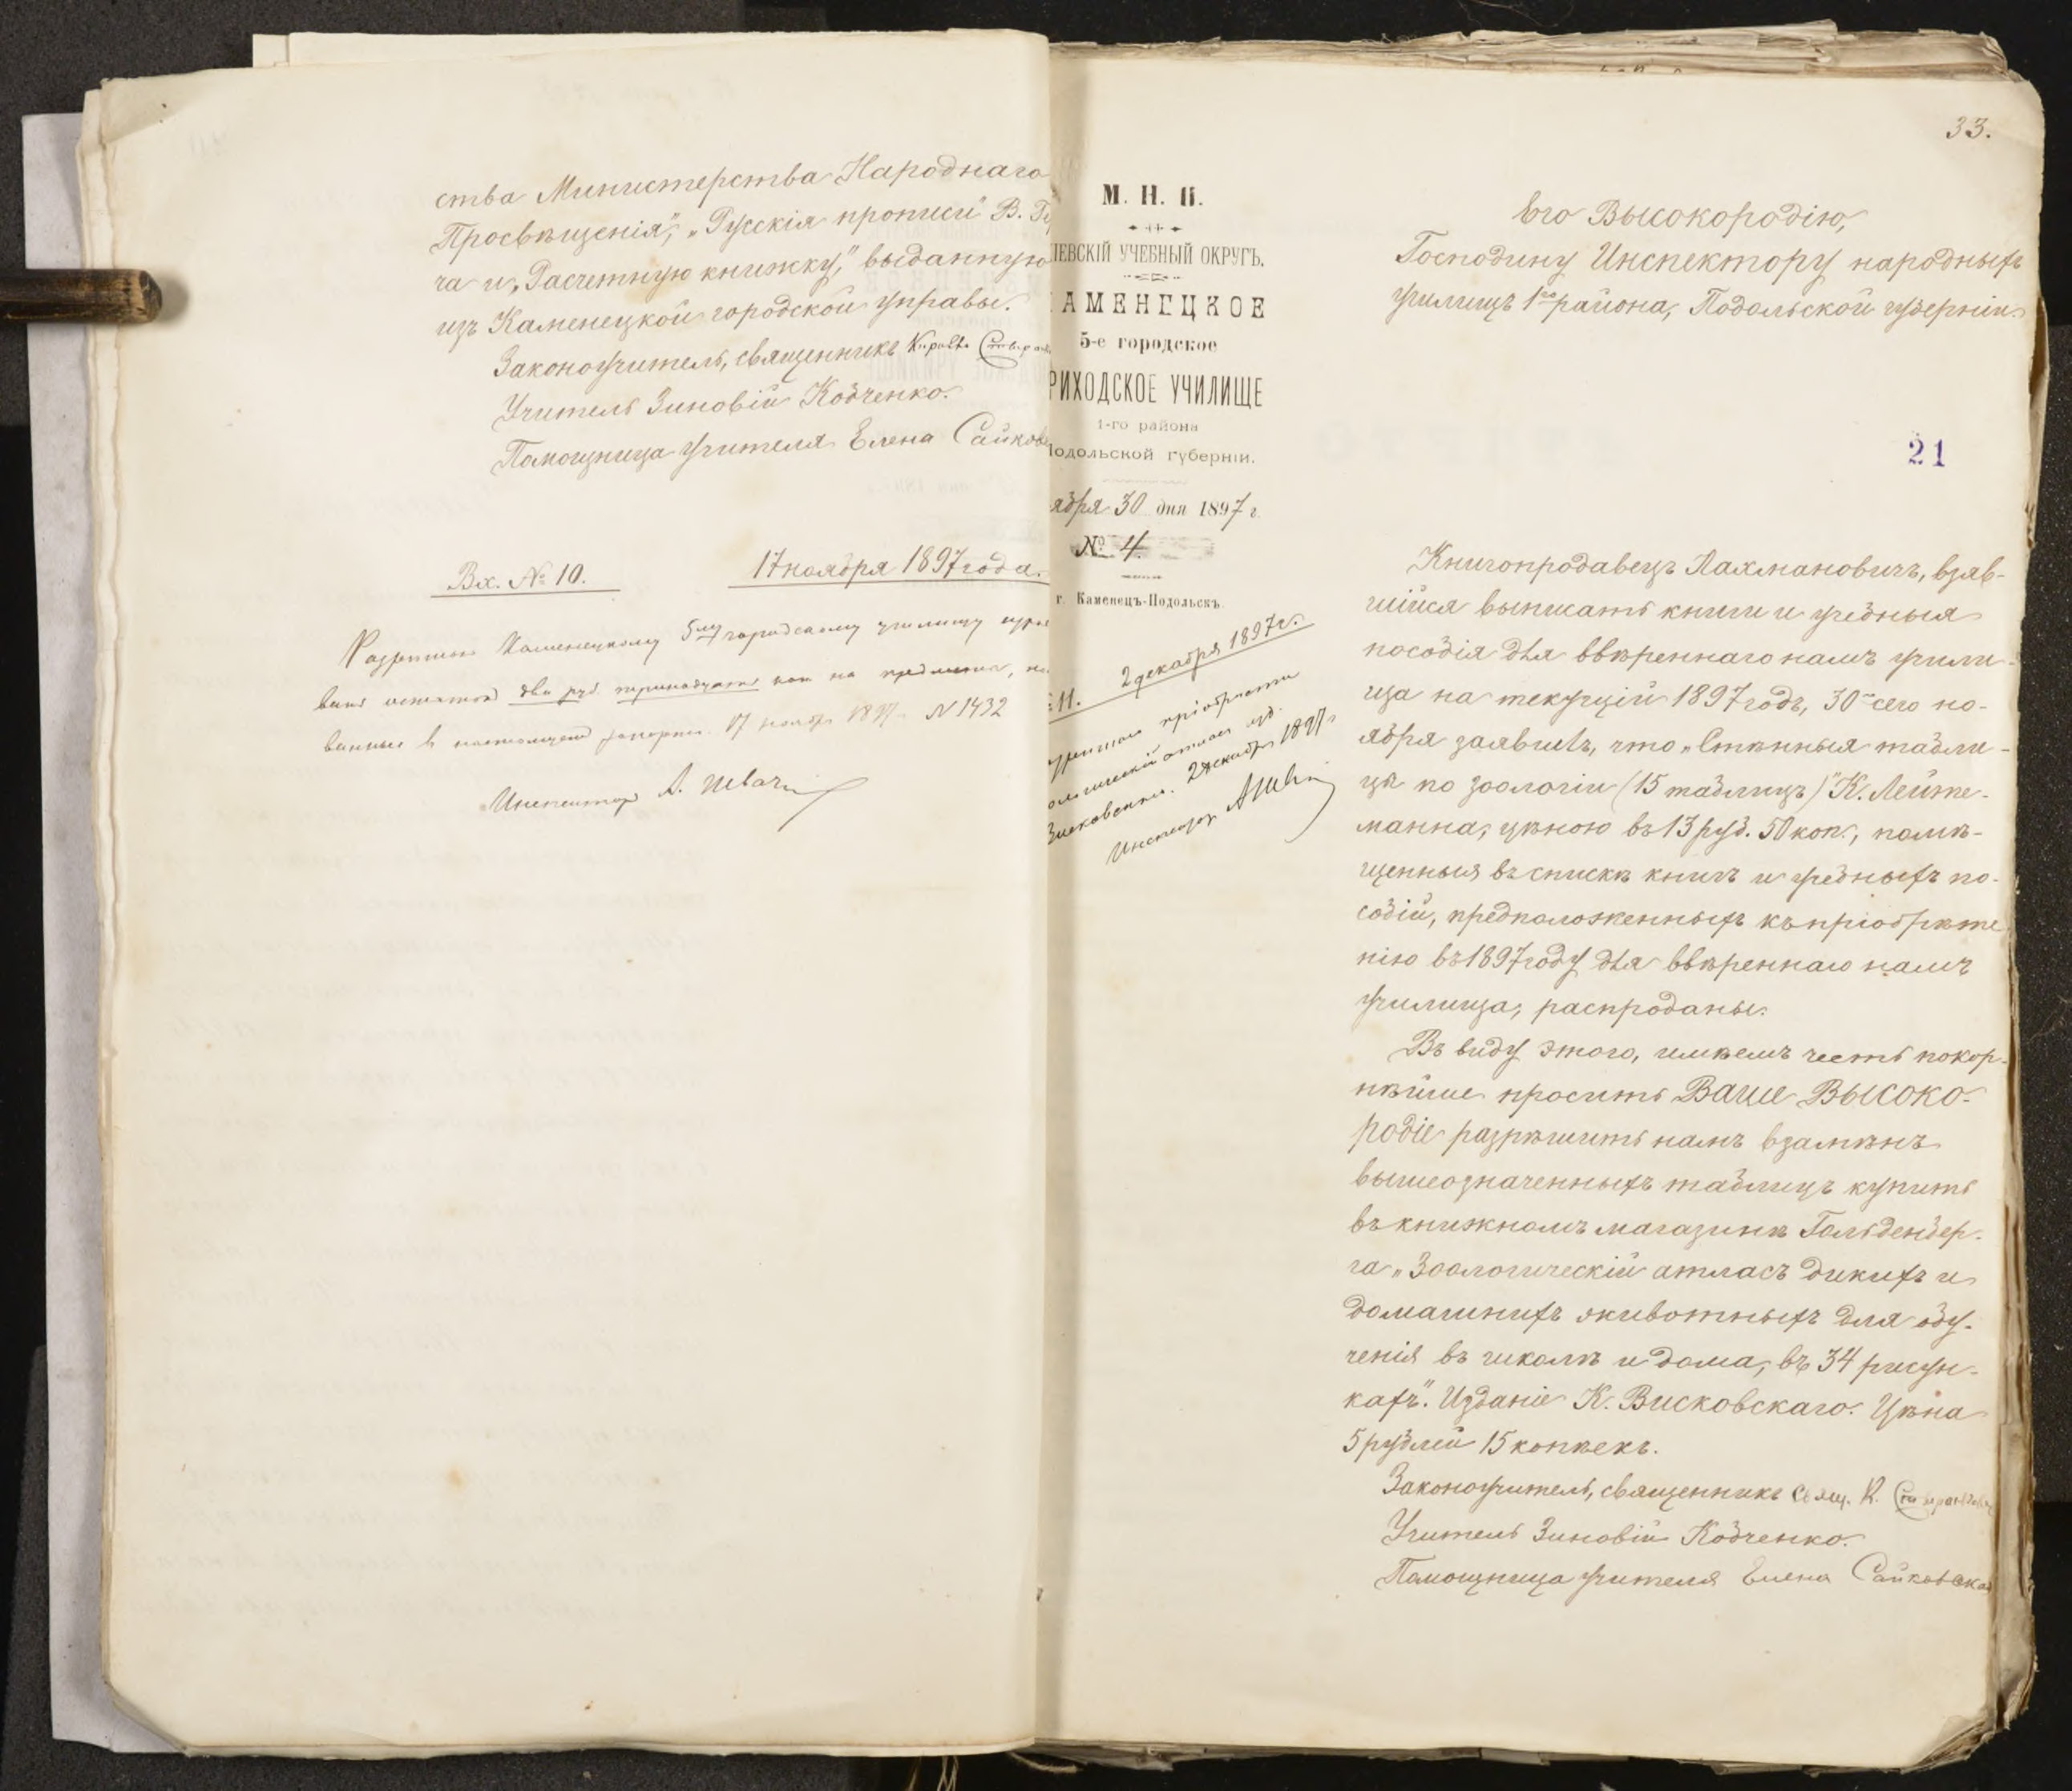 ства Министерства Народнаго
Просвѣщенія", „Русскія прописи" В. Гр
ча и „Расчетную книжку," выданную
изъ Каменецкой городской управы.
Законоучитель, священникъ Кириллъ
Учитель Зиновій Кобченко.
Помощница учителя Елена Сайков
Вх. № 10. 17 ноября 1897 года.
Разрѣшаю Каменецкому 5му городскому училищу
остатокъ два руб. на предметы,
въ настоящемъ рапортѣ. 17 ноября 1897 г. № 1432
Инспекторъ А. Шевачи
33.
М. Н. П.
ІЕВСКІЙ УЧЕБНЫЙ ОКРУГЪ.
АМЕНЕЦКОЕ
5-е городское
РИХОДСКОЕ УЧИЛИЩЕ
1-го района
Подольской губерніи.
ября 30 дня 1897 г.
№ 4.
г. Каменецъ-Подольскъ.
11. 2 декабря 1897 г.
пріобрѣсти
ологическій атласъ изд.
Висковскаго. 2 декабря 1897 г.
Инспекторъ
Его Высокородію,
Господину Инспектору народныхъ
училищъ 1го района, Подольской губерніи.
21
Книгопродавецъ Лахмановичъ, взяв-
шійся выписать книги и учебныя
пособія для ввѣреннаго намъ учили-
ща на текущій 1897 годъ, 30го сего но-
ября заявилъ, что „Стѣнныя табли-
цы по зоологіи (15 таблицъ)" К. Лейте-
манна, цѣною въ 13 руб. 50 коп., помѣ-
щенныя въ спискѣ книгъ и учебныхъ по-
собій, предположенныхъ къ пріобрѣте
нію въ 1897 году для ввѣреннаго намъ
училища, распроданы.
Въ виду этого, имѣемъ честь покор-
нѣйше просить Ваше Высоко-
родіе разрѣшить намъ взамѣнъ
вышеозначенныхъ таблицъ купить
въ книжномъ магазинѣ Гольденбер-
га „Зоологическій атласъ дикихъ и
домашнихъ животныхъ для обу-
ченія въ школѣ и дома, въ 34 рисун-
кахъ". Изданіе К. Висковскаго. Цѣна
5 рублей 15 копѣекъ.
Законоучитель, священникъ свящ. К.
Учитель Зиновій Кобченко.
Помощница учителя Елена Сайковская